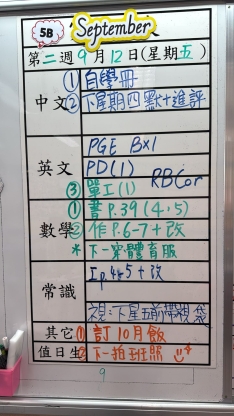 5B September
第二週9月12日(星期五)
中文 ① 自學冊
② 下星期四默+進評
英文 PGE B×1
PD(1) RB Cor
③ 單工(1)
數學 ① 書P.39(4,5)
② 作P.6-7+改
* 下一穿體育服
常識 +改
視:下星五前帶袋
其它 ① 訂10月飯
值日生 ② 下一拍班照
9